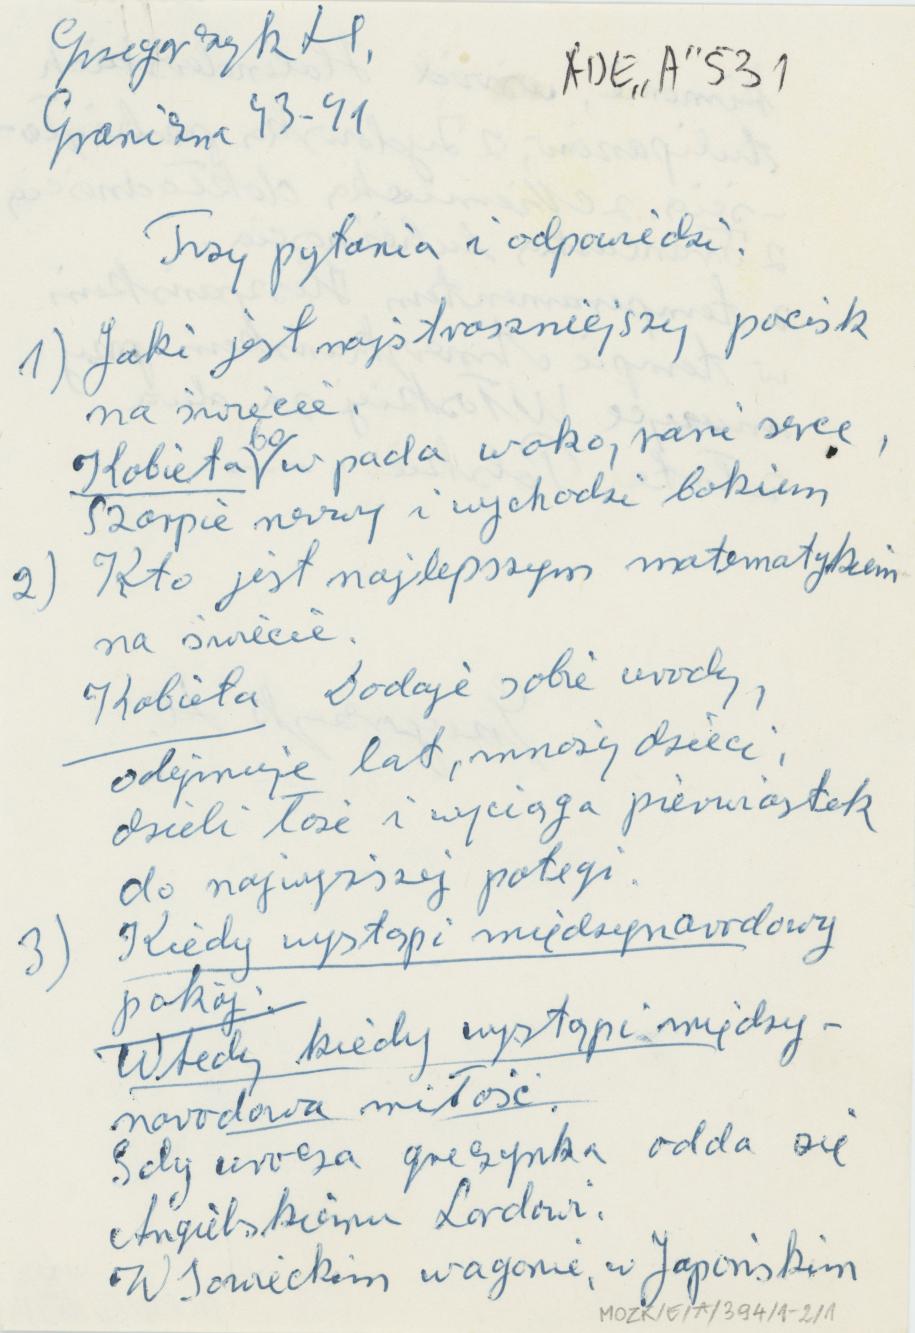 Grzegorczyk H.
ADE „A" 531
Graniczna 43-41
Trzy pytania i odpowiedzi.
1) Jaki jest najstraszniejszy pocisk
na świecie.
Kobieta bo w pada w oko, rani serce,
Szarpie nerwy i wychodzi bokiem
2) Kto jest najlepszym matematykiem
na świecie.
Kobieta Dodaje sobie urody,
odejmuje lat, mnoży dzieci,
dzieli łoże i wyciąga pierwiastek
do najwyższej potęgi.
3) Kiedy wystąpi międzynarodowy
pokój.
Wtedy kiedy wystąpi między-
narodowa miłość.
Gdy urocza greczynka odda się
Angielskiemu Lordowi.
W Sowieckim wagonie, w Japońskim
MOZK/E/A/394/1-2/1